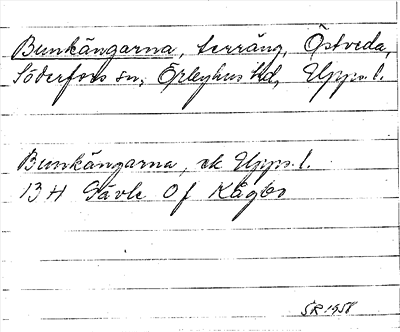 Bunkängarna, terräng, Östveda,
Söderfors sn, Örbyhus hd, Upps. l.
Bunkängarna, ek Upps. l.
13 H Gävle 0 f Kågbo
SR 1958